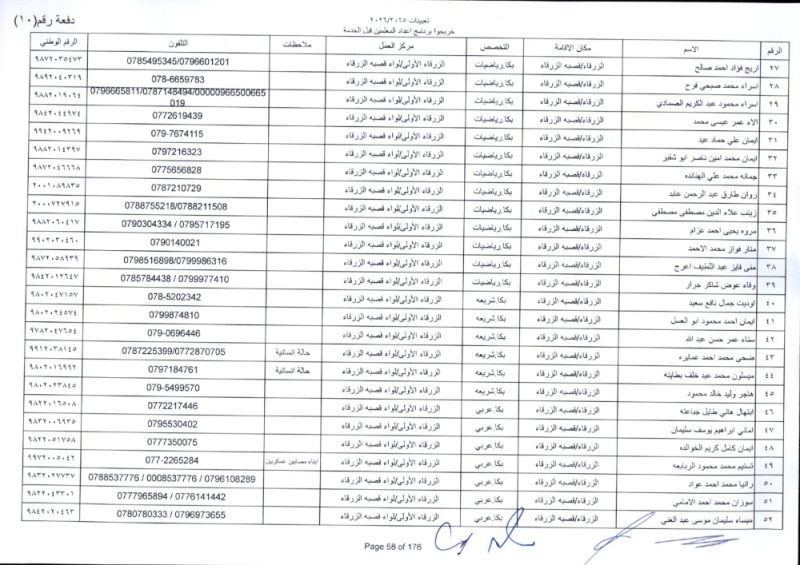 تعيينات ٢٠٢٦/٢٠٢٥
دفعة رقم(١٠)
خريجوا برنامج اعداد المعلمين قبل الخدمة
الرقم الاسم مكان الاقامة التخصص مركز العمل ملاحظات التلفون الرقم الوطني
٢٧ اريج فؤاد احمد صالح الزرقاء/قصبه الزرقاء بكا.رياضيات الزرقاء الأولى/لواء قصبه الزرقاء 0785495345/0796601201 ٩٨٧٢٠٣٥٤٧٣
٢٨ اسراء محمد صبحي فرح الزرقاء/قصبه الزرقاء بكا.رياضيات الزرقاء الأولى/لواء قصبه الزرقاء 078-6659783 ٩٨٩٢٠٤٠٣١٩
٢٩ اسراء محمود عبد الكريم الصمادي الزرقاء/قصبه الزرقاء بكا.رياضيات الزرقاء الأولى/لواء قصبه الزرقاء 0796665811/0787148494/00000966500665019 ٩٨٨٢٠١٩٠٦٤
٣٠ الاء عمر عيسى محمد الزرقاء/قصبه الزرقاء بكا.رياضيات الزرقاء الأولى/لواء قصبه الزرقاء 0772619439 ٩٨٤٢٠٤٤٩٧٤
٣١ ايمان علي حماد عيد الزرقاء/قصبه الزرقاء بكا.رياضيات الزرقاء الأولى/لواء قصبه الزرقاء 079-7674115 ٩٩٤٢٠٠٩٢٦٩
٣٢ ايمان محمد امين ناصر ابو شقير الزرقاء/قصبه الزرقاء بكا.رياضيات الزرقاء الأولى/لواء قصبه الزرقاء 0797216323 ٩٨٨٢٠١٤٣٩٧
٣٣ جمانه محمد علي الهناده الزرقاء/قصبه الزرقاء بكا.رياضيات الزرقاء الأولى/لواء قصبه الزرقاء 0775656828 ٩٨٧٢٠٤٦٦٦٨
٣٤ روان طارق عبد الرحمن عابد الزرقاء/قصبه الزرقاء بكا.رياضيات الزرقاء الأولى/لواء قصبه الزرقاء 0787210729 ٢٠٠٠١٠٨٩٨٣٥
٣٥ زينب علاء الدين مصطفى مصطفى الزرقاء/قصبه الزرقاء بكا.رياضيات الزرقاء الأولى/لواء قصبه الزرقاء 0788755218/0788211508 ٢٠٠٠٧٢٧٩١٥
٣٦ مروه يحيى احمد عزام الزرقاء/قصبه الزرقاء بكا.رياضيات الزرقاء الأولى/لواء قصبه الزرقاء 0790304334 / 0795717195 ٩٨٨٢٠٦٠٤١٧
٣٧ منار فواز محمد الاحمد الزرقاء/قصبه الزرقاء بكا.رياضيات الزرقاء الأولى/لواء قصبه الزرقاء 0790140021 ٩٩٠٢٠٣٠٤٦٠
٣٨ منى فايز عبد اللطيف اعرج الزرقاء/قصبه الزرقاء بكا.رياضيات الزرقاء الأولى/لواء قصبه الزرقاء 0798516898/0799986316 ٩٨٧٢٠٥٨٩٣٩
٣٩ وفاء عوض شاكر جرار الزرقاء/قصبه الزرقاء بكا.رياضيات الزرقاء الأولى/لواء قصبه الزرقاء 0785784438 / 0799977410 ٩٨٤٢٠١٢٦٤٧
٤٠ اوديت جمال نافع سعيد الزرقاء/قصبه الزرقاء بكا.شريعه الزرقاء الأولى/لواء قصبه الزرقاء 078-5202342 ٩٨٠٢٠٤٧١٥٧
٤١ ايمان احمد محمود ابو العسل الزرقاء/قصبه الزرقاء بكا.شريعه الزرقاء الأولى/لواء قصبه الزرقاء 0799874810 ٩٨٠٢٠٢٤٥٧٤
٤٢ سناء عمر حسن عبد الله الزرقاء/قصبه الزرقاء بكا.شريعه الزرقاء الأولى/لواء قصبه الزرقاء 079-0696446 ٩٧٨٢٠٤٧٦٥٤
٤٣ ضحى محمد احمد عمايره الزرقاء/قصبه الزرقاء بكا.شريعه الزرقاء الأولى/لواء قصبه الزرقاء حالة انسانية 0787225399/0772870705 ٩٩١٢٠٣٨١٤٥
٤٤ ميسلون محمد عيد خلف بطاينه الزرقاء/قصبه الزرقاء بكا.شريعه الزرقاء الأولى/لواء قصبه الزرقاء حالة انسانية 0797184761 ٩٨٠٢٠١٦٩٩٢
٤٥ هاجر وليد خالد محمود الزرقاء/قصبه الزرقاء بكا.شريعه الزرقاء الأولى/لواء قصبه الزرقاء 079-5499570 ٩٨٠٢٠٢٣٨٤٥
٤٦ ابتهال هاني طايل جباعته الزرقاء/قصبه الزرقاء بكا.عربي الزرقاء الأولى/لواء قصبه الزرقاء 0772217446 ٩٨٢٢٠١٦٥٠٨
٤٧ اماني ابراهيم يوسف سليمان الزرقاء/قصبه الزرقاء بكا.عربي الزرقاء الأولى/لواء قصبه الزرقاء 0795530402 ٩٨٣٢٠٠٦٩٣٥
٤٨ ايمان كامل كريم الخوالده الزرقاء/قصبه الزرقاء بكا.عربي الزرقاء الأولى/لواء قصبه الزرقاء 0777350075 ٩٨٢٢٠٥١٧٥٨
٤٩ تسنيم محمد محمود الربابعه الزرقاء/قصبه الزرقاء بكا.عربي الزرقاء الأولى/لواء قصبه الزرقاء ابناء مصابين عسكريين 077-2265284 ٩٩٧٢٠٠٥٠٤٢
٥٠ رانيا محمد احمد عواد الزرقاء/قصبه الزرقاء بكا.عربي الزرقاء الأولى/لواء قصبه الزرقاء 0788537776 / 0008537776 / 0796108289 ٩٨٣٢٠٢٧٧٣٧
٥١ سوزان محمد احمد الامامي الزرقاء/قصبه الزرقاء بكا.عربي الزرقاء الأولى/لواء قصبه الزرقاء 0777965894 / 0776141442 ٩٨٢٢٠٤٣٣٠١
٥٢ ميساء سليمان موسى عبد الغني الزرقاء/قصبه الزرقاء بكا.عربي الزرقاء الأولى/لواء قصبه الزرقاء 0780780333 / 0796973655 ٩٨٤٢٠٢٠٤٦٣
Page 58 of 176